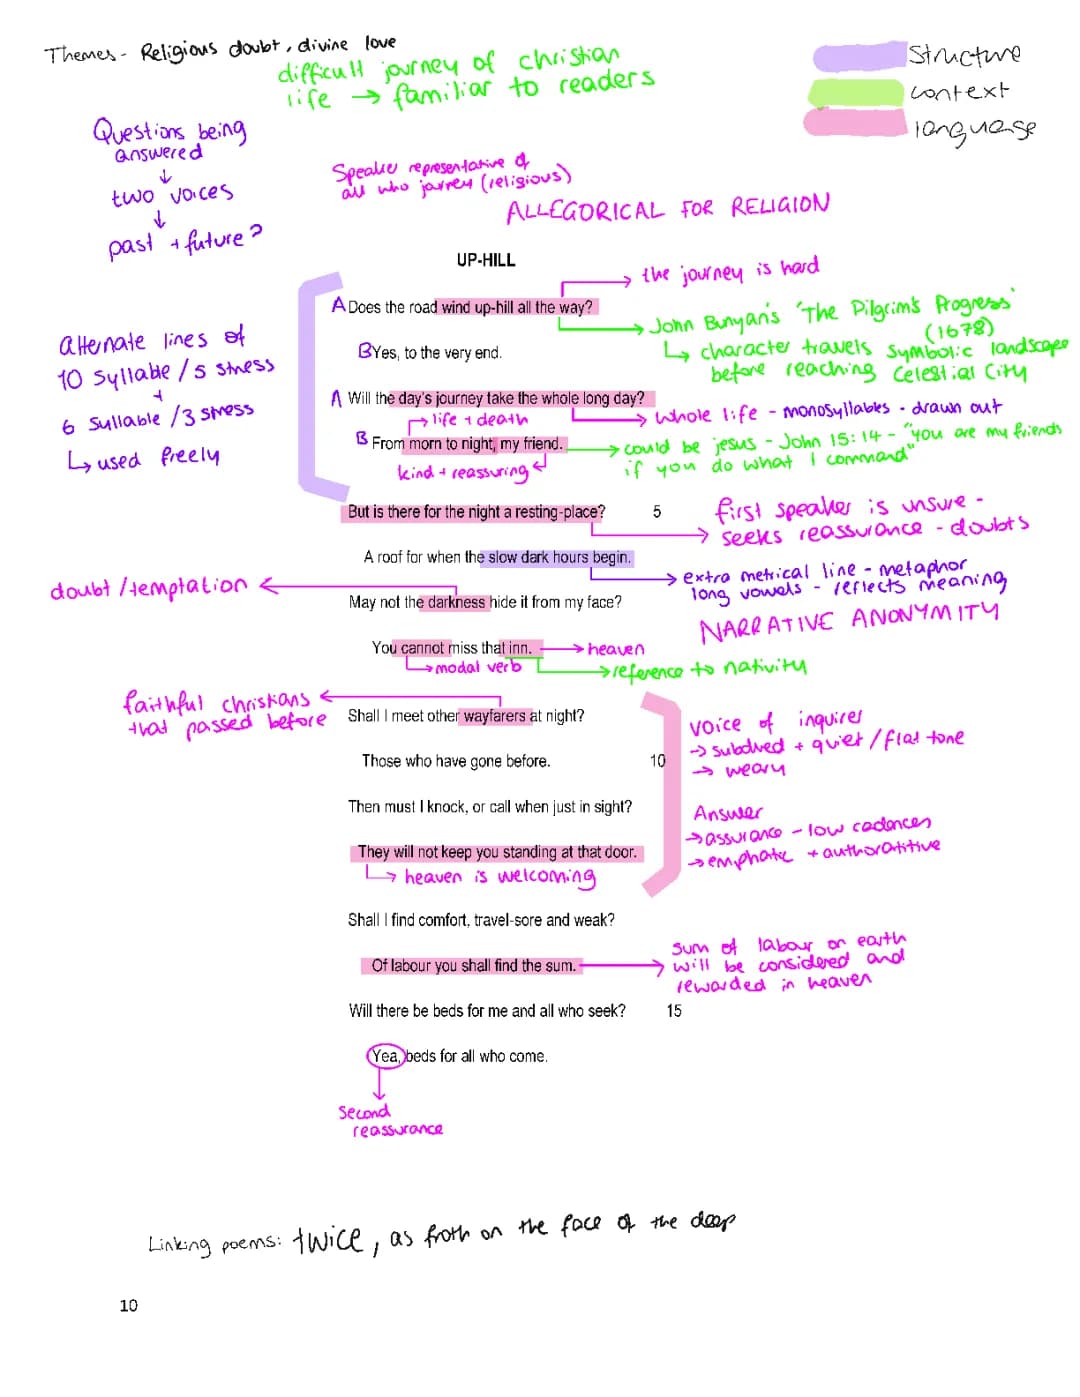 Themes - Religious doubt, divine love
difficult journey of christian
life → familiar to readers
Structure
context
language
Questions being
answered
↓
two voices
↓
past + future?
Speaker representative of
all who jorrey (religious)
ALLEGORICAL FOR RELIGION
UP-HILL
→ the journey is hard
A Does the road wind up-hill all the way?
→ John Bunyan's 'The Pilgrim's Progress'
(1678)
↳ character travels symbolic landscape
before reaching Celestial City
B Yes, to the very end.
alternate lines of
10 syllable / 5 stress
+
6 sullable / 3 stress
↳ used freely
A Will the day's journey take the whole long day?
→ life + death
→ whole life - monosyllables - drawn out
B From morn to night, my friend.
→ could be jesus - John 15:14 - "you are my friends
if you do what I command"
kind + reassuring
But is there for the night a resting-place? 5
first speaker is unsure -
→ seeks reassurance - doubts
A roof for when the slow dark hours begin.
→ extra metrical line - metaphor
long vowels - reflects meaning
doubt / temptation ←
May not the darkness hide it from my face?
NARRATIVE ANONYMITY
You cannot miss that inn. → heaven
↳ modal verb
→ reference to nativity
faithful christians ←
that passed before
Shall I meet other wayfarers at night?
voice of inquirer
→ subdued + quiet / flat tone
→ weary
Those who have gone before. 10
Then must I knock, or call when just in sight?
Answer
→ assurance - low cadences
→ emphatic + authoratitive
They will not keep you standing at that door.
↳ heaven is welcoming
Shall I find comfort, travel-sore and weak?
Of labour you shall find the sum.
sum of labour on earth
→ will be considered and
rewarded in heaven
Will there be beds for me and all who seek? 15
Yea, beds for all who come.
↓
Second
reassurance
Linking poems: twice, as froth on the face of the deep
10